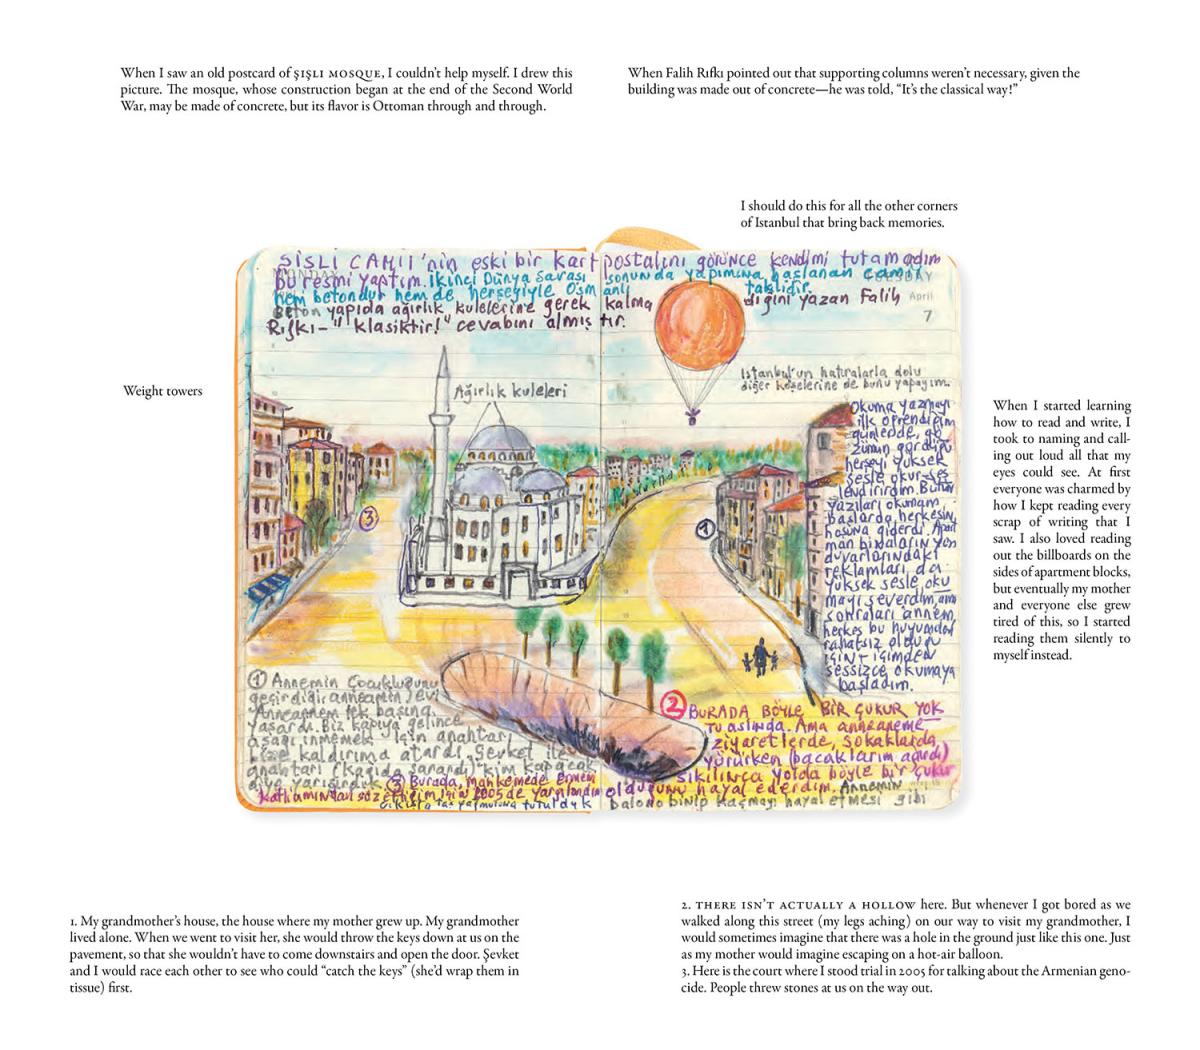 When I saw an old postcard of ŞIŞLI MOSQUE, I couldn't help myself. I drew this
picture. The mosque, whose construction began at the end of the Second World
War, may be made of concrete, but its flavor is Ottoman through and through.
When Falih Rıfkı pointed out that supporting columns weren't necessary, given the
building was made out of concrete—he was told, “It's the classical way!”
I should do this for all the other corners
of Istanbul that bring back memories.
SİSLİ CAMİİ'nin eski bir kart postalını görünce kendimi tutamadım
MONDAY
TUESDAY
bu resmi yaptım. İkinci Dünya Savası sonunda yapımına başlanan cami
hem betondur hem de herseyiyle Osmanlı taklidir.
Beton yapıda ağırlık kulelerine gerek kalmadığını yazan Falih
April
7
Rıfkı-"klasiktir!" cevabını almıştır.
Weight towers
Ağırlık kuleleri
Istanbul'un hatıralarla dolu
diğer köşelerine de bunu yapayım.
Okuma yazmayı
ilk öğrendiğim
günlerde, gö
zümün gördüğü
herşeyi yüksek
sesle okur-ses
lendirirdim. Bütün
yazıları okumam
başlarda herkesin
hoşuna giderdi. Apart
man binalarının yan
duvarlarındaki
reklamları da
yüksek sesle oku
mayı severdim ama
sonraları annem,
herkes bu huyumdan
rahatsız oldum
İÇİN-içimden
sessizce okumaya
başladım.
When I started learning
how to read and write, I
took to naming and call-
ing out loud all that my
eyes could see. At first
everyone was charmed by
how I kept reading every
scrap of writing that I
saw. I also loved reading
out the billboards on the
sides of apartment blocks,
but eventually my mother
and everyone else grew
tired of this, so I started
reading them silently to
myself instead.
3
1
1 Annemin Çocukluğunu
geçirdiği anneannem evi
Anneannem tek başına
yaşardı. Biz kapıya gelince
aşağı inmemek için anahtarı
bize kaldırıma atardı. Şevket ile
anahtarı (kağıda sarardı) "kim kapacak
diye yarışırdık.
3 Burada, mahkemede Ermeni
katliamından söz ettiğim için 2005 de yargılandım
çıkışta taş yağmuruna tutulduk
2 BURADA BÖYLE BİR ÇUKUR YOK
TU aslında. Ama anneanneme
ziyaretlerde, sokaklarda
yürürken (bacaklarım ağrırdı)
sıkılınca yolda böyle bir çukur
olduğunu hayal ederdim. Annemin
balona binip kaçmayı hayal etmesi gibi
1. My grandmother's house, the house where my mother grew up. My grandmother
lived alone. When we went to visit her, she would throw the keys down at us on the
pavement, so that she wouldn't have to come downstairs and open the door. Şevket
and I would race each other to see who could “catch the keys” (she'd wrap them in
tissue) first.
2. THERE ISN'T ACTUALLY A HOLLOW here. But whenever I got bored as we
walked along this street (my legs aching) on our way to visit my grandmother, I
would sometimes imagine that there was a hole in the ground just like this one. Just
as my mother would imagine escaping on a hot-air balloon.
3. Here is the court where I stood trial in 2005 for talking about the Armenian geno-
cide. People threw stones at us on the way out.